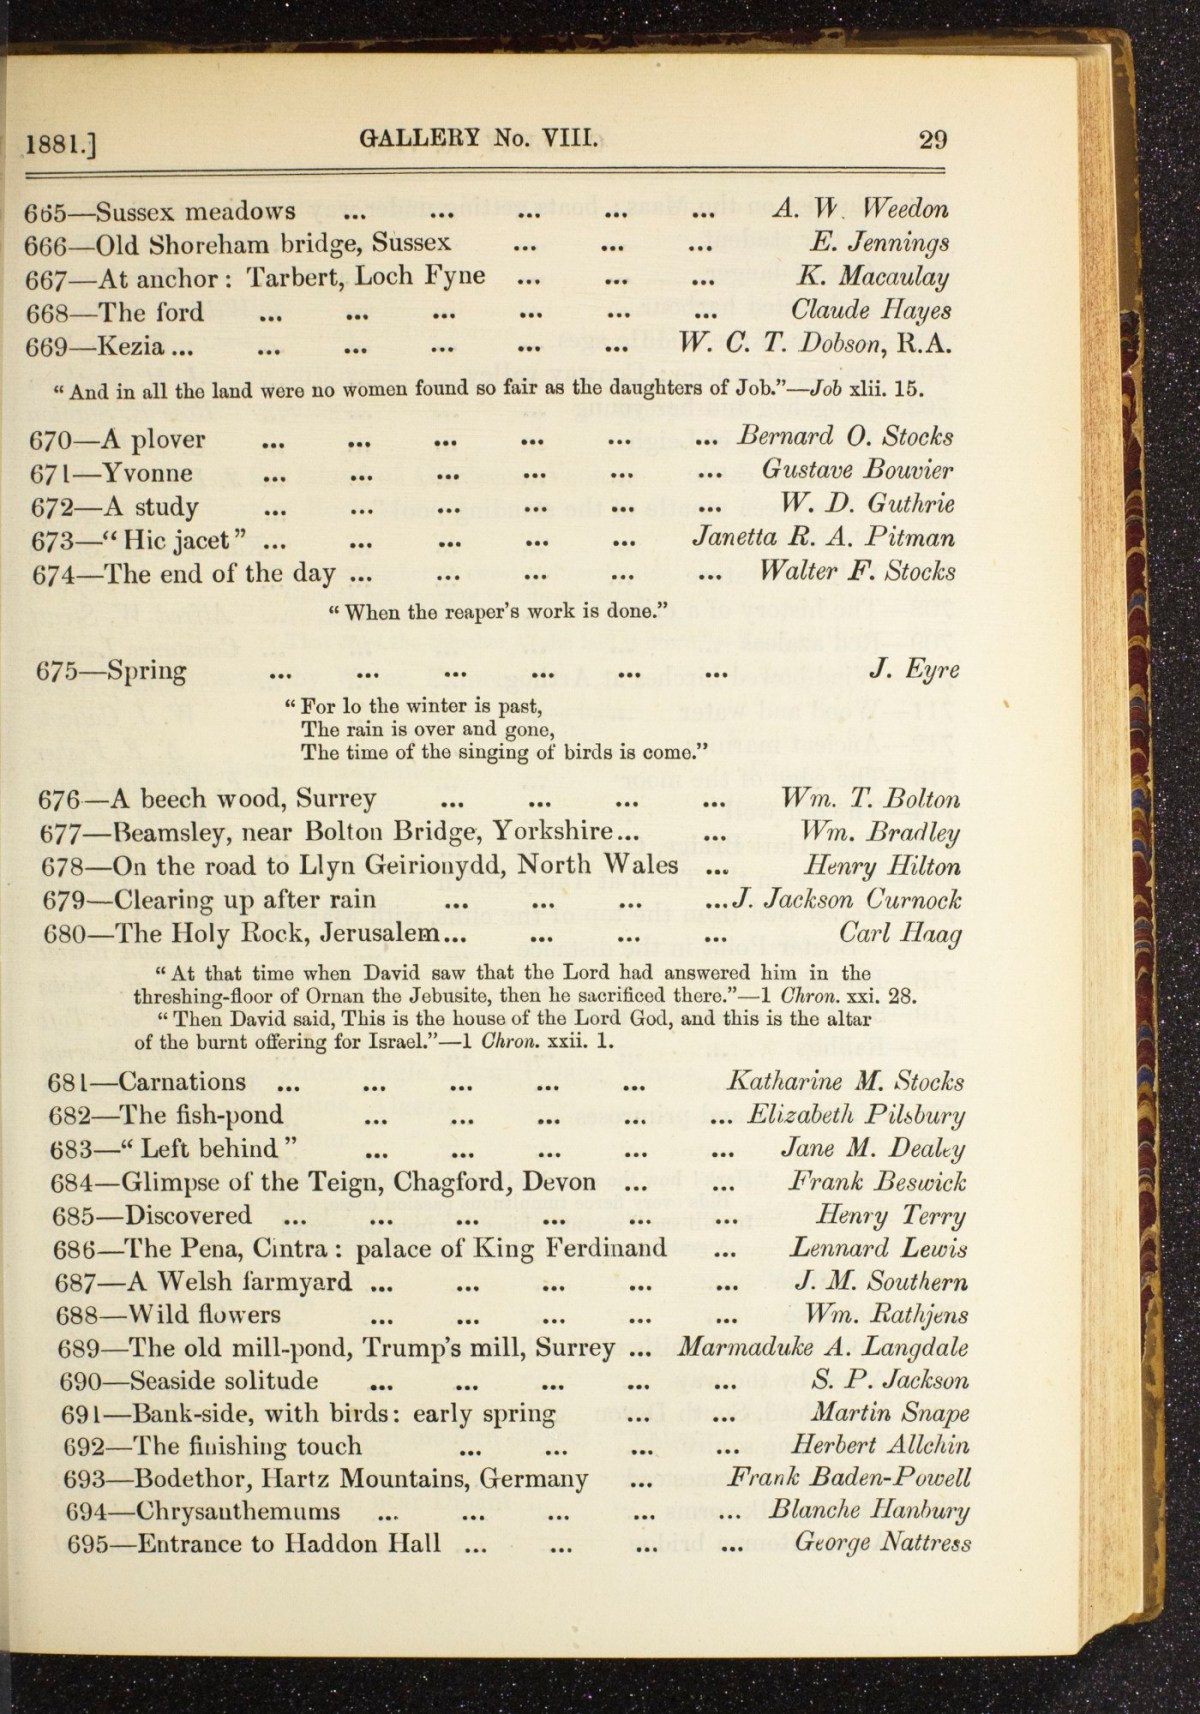 1881.] GALLERY No. VIII. 29
665—Sussex meadows ... ... ... ... ... A. W. Weedon
666—Old Shoreham bridge, Sussex ... ... ... E. Jennings
667—At anchor: Tarbert, Loch Fyne ... ... ... K. Macaulay
668—The ford ... ... ... ... ... ... Claude Hayes
669—Kezia ... ... ... ... ... ... W. C. T. Dobson, R.A.
“And in all the land were no women found so fair as the daughters of Job.”—Job xlii. 15.
670—A plover ... ... ... ... ... ... Bernard O. Stocks
671—Yvonne ... ... ... ... ... ... Gustave Bouvier
672—A study ... ... ... ... ... ... W. D. Guthrie
673—“Hic jacet” ... ... ... ... ... Janetta R. A. Pitman
674—The end of the day ... ... ... ... ... Walter F. Stocks
“When the reaper's work is done.”
675—Spring ... ... ... ... ... ... J. Eyre
“For lo the winter is past,
The rain is over and gone,
The time of the singing of birds is come.”
676—A beech wood, Surrey ... ... ... ... Wm. T. Bolton
677—Beamsley, near Bolton Bridge, Yorkshire... ... Wm. Bradley
678—On the road to Llyn Geirionydd, North Wales ... Henry Hilton
679—Clearing up after rain ... ... ... ...J. Jackson Curnock
680—The Holy Rock, Jerusalem... ... ... ... Carl Haag
“At that time when David saw that the Lord had answered him in the
threshing-floor of Ornan the Jebusite, then he sacrificed there.”—1 Chron. xxi. 28.
“Then David said, This is the house of the Lord God, and this is the altar
of the burnt offering for Israel.”—1 Chron. xxii. 1.
681—Carnations ... ... ... ... ... Katharine M. Stocks
682—The fish-pond ... ... ... ... ... Elizabeth Pilsbury
683—“Left behind” ... ... ... ... ... Jane M. Dealey
684—Glimpse of the Teign, Chagford, Devon ... ... Frank Beswick
685—Discovered ... ... ... ... ... ... Henry Terry
686—The Pena, Cintra: palace of King Ferdinand ... Lennard Lewis
687—A Welsh farmyard ... ... ... ... ... J. M. Southern
688—Wild flowers ... ... ... ... ... Wm. Rathjens
689—The old mill-pond, Trump's mill, Surrey ... Marmaduke A. Langdale
690—Seaside solitude ... ... ... ... ... S. P. Jackson
691—Bank-side, with birds: early spring ... ... Martin Snape
692—The finishing touch ... ... ... ... Herbert Allchin
693—Bodethor, Hartz Mountains, Germany ... Frank Baden-Powell
694—Chrysanthemums ... ... ... ... ... Blanche Hanbury
695—Entrance to Haddon Hall ... ... ... ... George Nattress